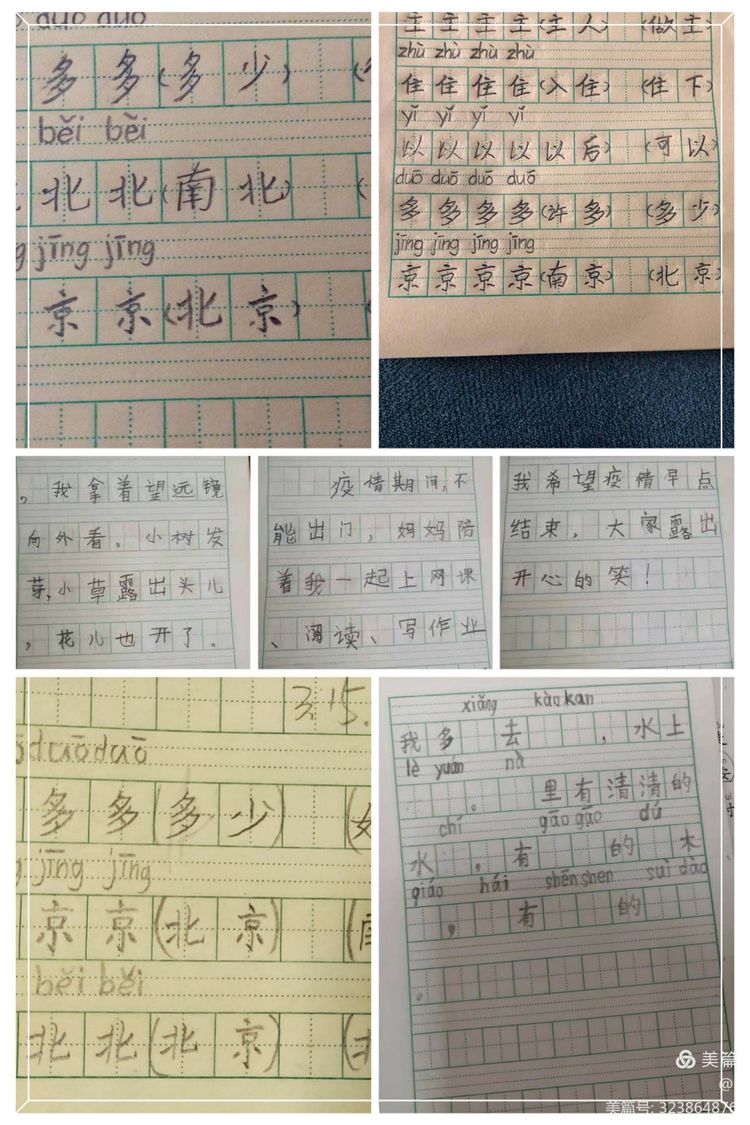 duo duo
多多(多少)
běi běi
北北(南北)
jīng jīng
京京(北京)
主主主主(主人) (做主)
zhù zhù zhù zhù
住住住住(入住) (住下)
yǐ yǐ yǐ yǐ
以以以以以后) (可以)
duō duō duō duō
多多多多(许多) (多少)
jīng jīng jīng jīng
京京京京(南京) (北京)
。我拿着望远镜
向外看。小树发
芽,小草露出头儿
,花儿也开了。
疫情期间,不
能出门,妈妈陪
着我一起上网课
、阅读、写作业
我希望疫情早点
结束,大家露出
开心的笑!
3.15.
duō duō
多多(多少)
jīng jīng
京京(北京)
běi běi
北北(北京)
xiǎng kàn kan
我多 去 ,水上
lè yuán nà
。 里有清清的
chí gāo gāo dú
水 。有 的木
qiáo hái shēn shen suì dào
, 有 的
。
美篇
@
美篇号: 323864876